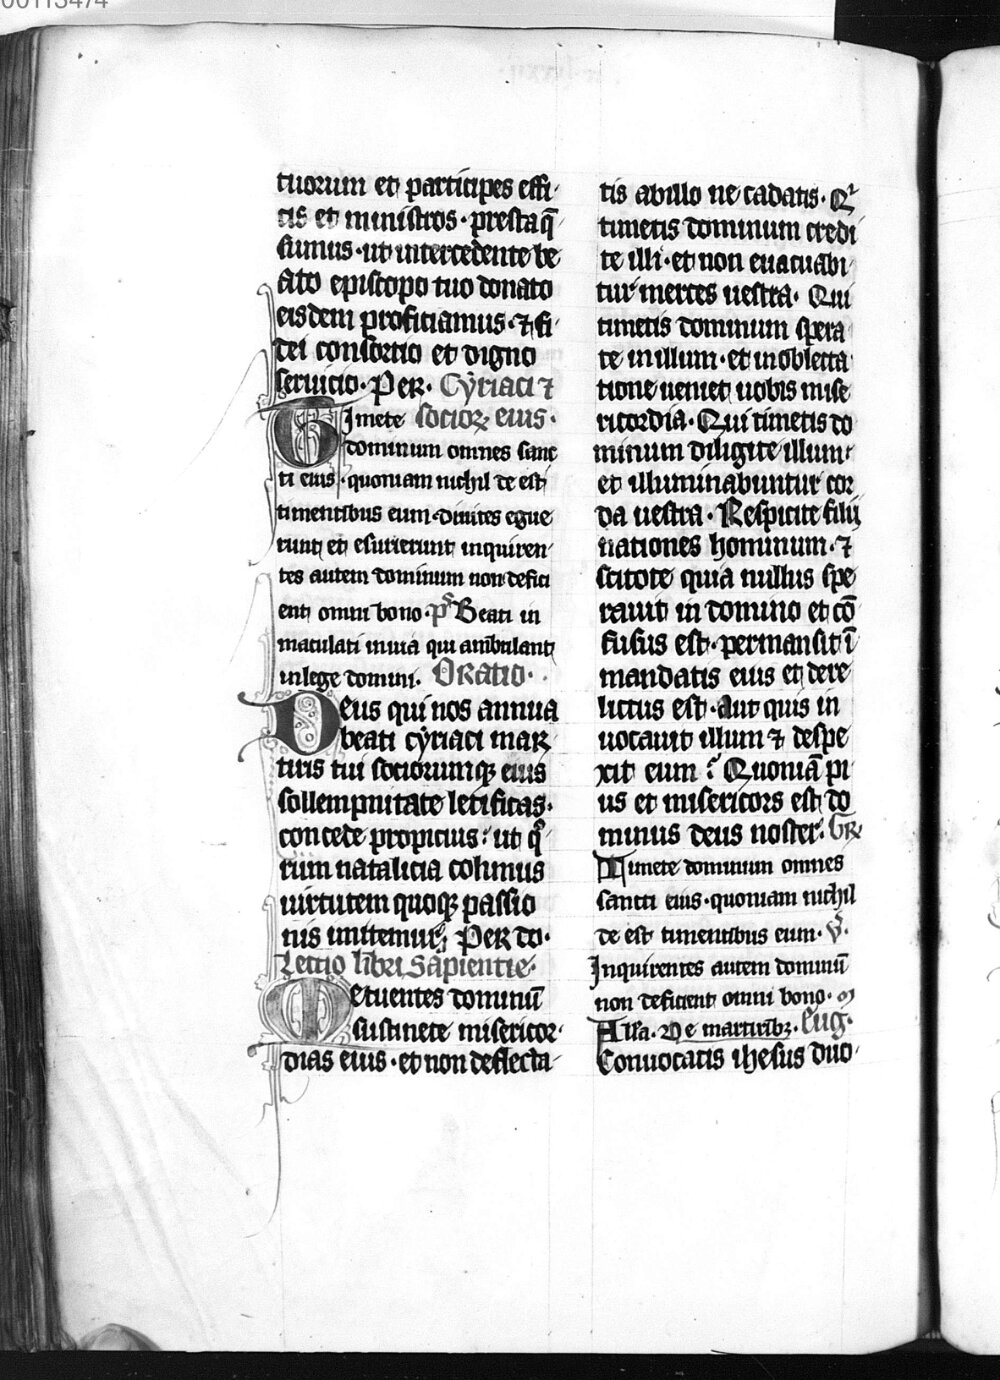 00113474
tuorum et participes effi
cis et ministros · presta q̄
sumus · ut intercedente be
ato episcopo tuo donato
eisdem proficiamus · ⁊ fi
dei consortio et digno
seruicio · Per · Cyriaci ⁊
Timete socioꝝ eius ·
dominum omnes sanc
ti eius · quoniam nichil de est
timentibus eum · diuites egue
runt et esurierunt inquiren
tes autem dominum non defici
ent omni bono · pˢ Beati in
maculati in uia qui ambulant
in lege domini · Oratio ·
Deus qui nos annua
beati cyriaci mar
tiris tui sociorumqꝫ eius
sollempnitate letificas ·
concede propicius : ut qͦ
rum natalicia colimus
uirtutem quoqꝫ passio
nis imitemur · Per do ·
Lectio libri Sapientie ·
Metuentes dominū
sustinete misericor
dias eius · et non deflecta
tis ab illo ne cadatis · Qͥ
timetis dominum credi
te illi · et non euacuabi
tur merces uestra · Qui
timetis dominum spera
te in illum · et in oblecta
tione ueniet uobis mise
ricordia · Qui timetis do
minum diligite illum ·
et illuminabuntur cor
da uestra · Respicite filij
nationes hominum · ⁊
scitote quia nullus spe
rauit in domino et cō
fusus est · permansit ī
mandatis eius et dere
lictus est · Aut quis in
uocauit illum ⁊ despe
xit eum : Quoniā pi
us et misericors est do
minus deus noster · Gr
Timete dominum omnes
sancti eius · quoniam nichil
de est timentibus eum · ꝟ ·
Inquirentes autem dominū
non deficient omni bono ·
Alla · De martiribꝫ · Eug̅ ·
Conuocatis ihesus duo